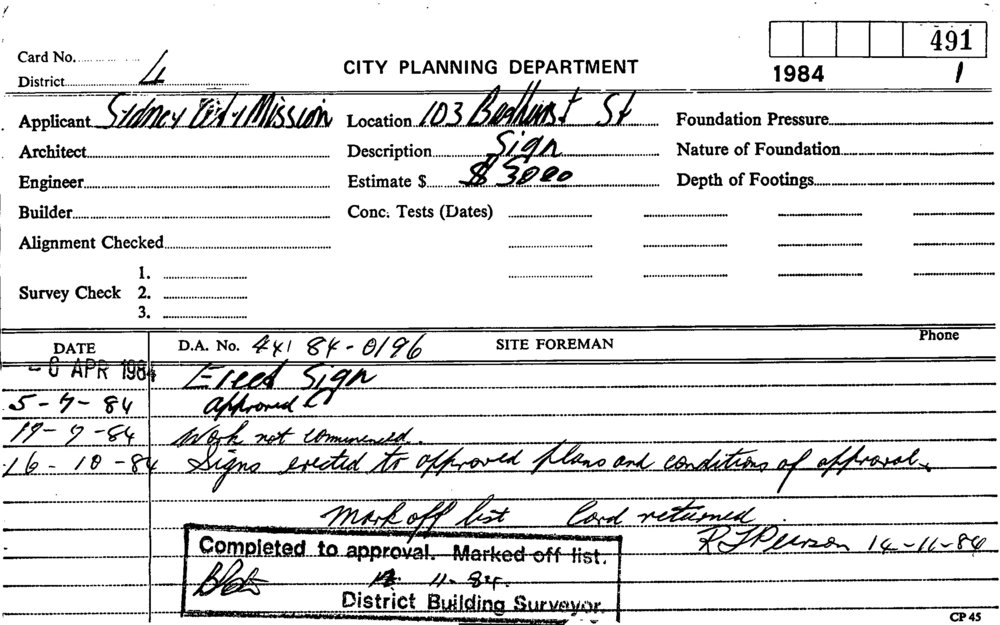 491
Card No. CITY PLANNING DEPARTMENT 1984 1
District 4
Applicant Sydney City Mission Location 103 Bathurst St Foundation Pressure
Architect Description Sign Nature of Foundation
Engineer Estimate $ $ 3000 Depth of Footings
Builder Conc. Tests (Dates)
Alignment Checked
1.
Survey Check 2.
3.
DATE D.A. No. 44 84-0196 SITE FOREMAN Phone
APR 1984 Erect Sign
5-7-84 approved
17-7-84 Work not commenced.
16-10-84 Signs erected to approved plans and conditions of approval.
Mark off list Card returned.
14-11-84
Completed to approval. Marked off list.
11-84.
District Building Surveyor.
CP 45